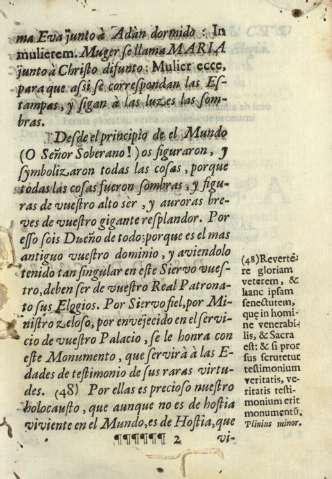 ma Eva junto à Adàn dormido : In
mulierem. Muger se llama MARIA
junto à Christo difunto : Mulier ecce,
para que assi se correspondan las Es-
tampas, y sigan à las luzes las som-
bras.
Desde el principio de el Mundo
(O Señor Soberano!) os figuraron, y
symbolizaron todas las cosas, porque
todas las cosas fueron sombras, y figu-
ras de vuestro alto sèr, y auroras bre-
ves de vuestro gigante resplandor. Por
esso sois Dueño de todo; porque es el mas
antiguo vuestro dominio, y aviendolo
tenido tan singular en este Siervo vues-
tro, deben ser de vuestro Real Patrona-
to sus Elogios. Por Siervo fiel, por Mi-
nistro zeloso, por envejecido en el servi-
cio de vuestro Palacio, se le honra con
este Monumento, que servirà à las E-
dades de testimonio de sus raras virtu-
des. (48) Por ellas es precioso nuestro
holocausto, que aunque no es de hostia
viviente en el Mundo, es de Hostia, que
¶¶¶¶¶¶ 2 vi-
(48) Revertè-
re gloriam
veterem, &
hanc ipsam
senectutem,
que in homi-
ne venerabi-
lis, & Sacra
est: & si pror
sus scrutetur
testimonium
veritatis, ve-
ritatis testi-
monium erit
monumentũ.
Plinius minor.